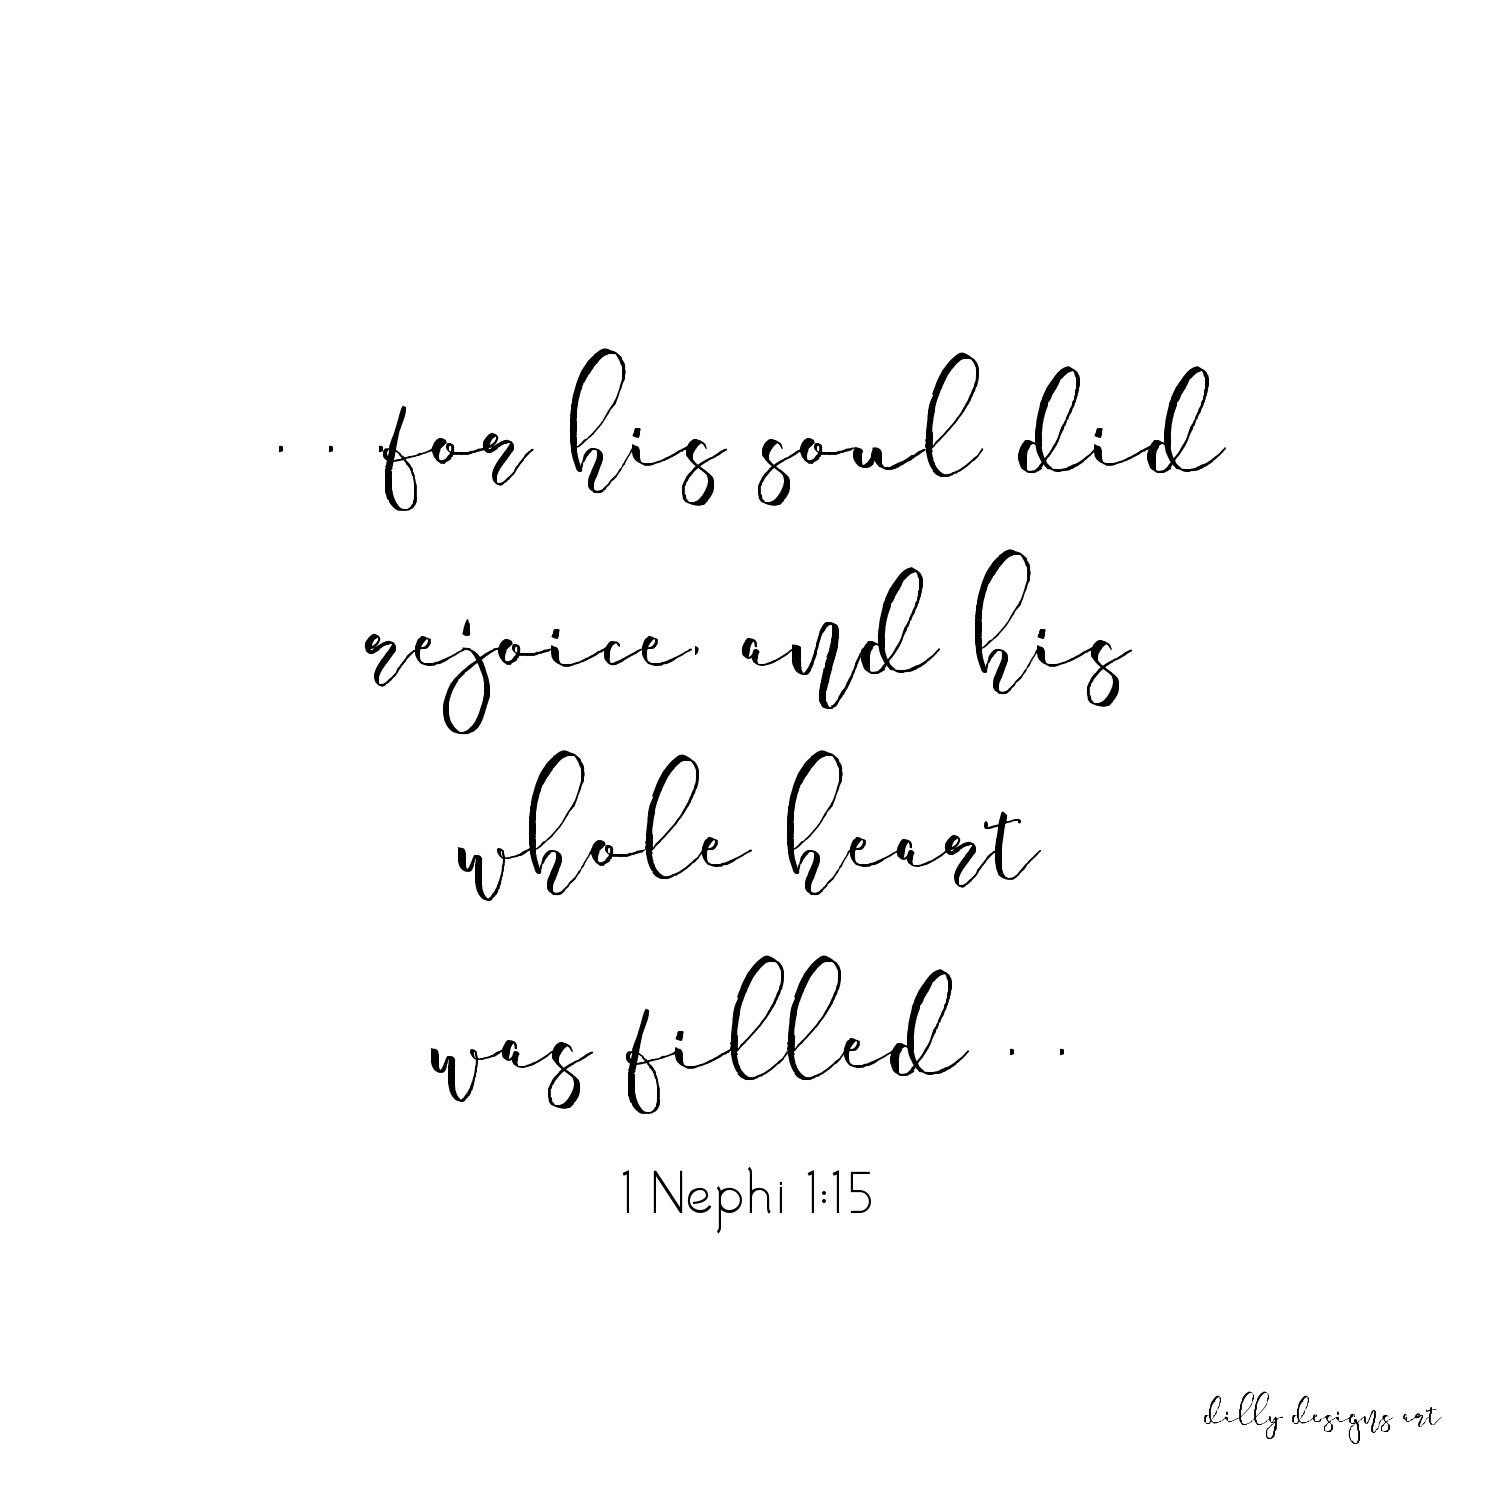 . . .for his soul did
rejoice, and his
whole heart
was filled . .
1 Nephi 1:15
dilly designs art